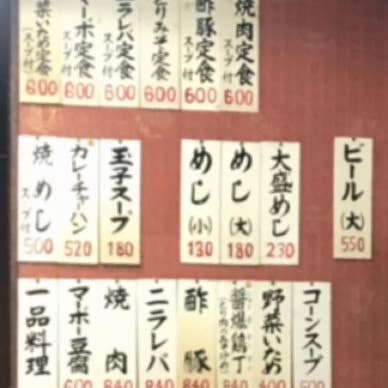 焼肉定食 スープ付 600
酢豚定食 スープ付 600
とりみそ定食 600
ニラレバ定食 スープ付 600
マーボ定食 スープ付 600
菜いため定食 (スープ付) 600
ビール (大) 550
大盛めし 230
めし (大) 180
めし (小) 130
玉子スープ 180
カレーチャーハン 520
焼めし スープ付 500
コーンスープ
野菜いため
酢豚
ニラレバ
焼肉
マーボー豆腐
一品料理